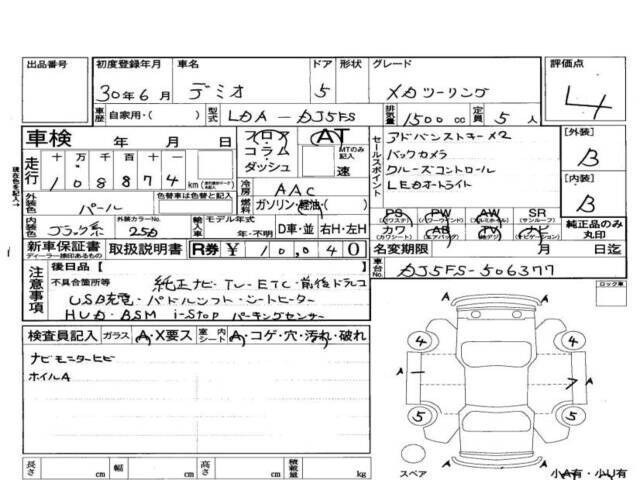 出品番号 初度登録年月 車名 ドア 形状 グレード 評価点
30年6月 デミオ 5 XDツーリング 4
車歴 自家用・( ) 型式 LDA-DJ5FS 排気量 1500 cc 定員 5人
車検 年 月 日 フロア コラム ダッシュ AT MTのみ記入 速
セールスポイント
アドバンストキー×2
バックカメラ
クルーズコントロール
LEDオートライト
[外装] B
[内装] B
現在色を記入→
走行 十万千百十一
108874 km
冷房 AAC
外装色 パール 色替車は色替と記入 燃料 ガソリン・軽油・( )
内装色 ブラック系 外装カラーNo. 25D 輸入車 モデル年式 年・不明 D車・並 右H・左H
PS (パワステ) PW (パワーウインド) AW (アルミホイール) SR (サンルーフ)
カワ (カワシート) AB (エアバッグ) TV (テレビ) ナビ (ナビゲーション)
純正品のみ丸印
新車保証書 ディーラー捺印あるもの 取扱説明書 R券 ¥ 10,040
名変期限 月 日迄
車台No. DJ5FS-506377
注意事項
後日品【
不具合箇所等 純正ナビ・TV・ETC・前後ドラレコ
USB充電・パドルシフト・シートヒーター
HUD・BSM i-stop パーキングセンサー
ロック車
検査員記入 ガラス A・X要ス 室内シート A・コゲ・穴・汚れ・破れ
ナビモニターヒビ
ホイルA
4 4
A A A 7
5 5
A A
スペア 小A有・小U有
長さ cm 幅 cm 高さ cm 積載量 kg